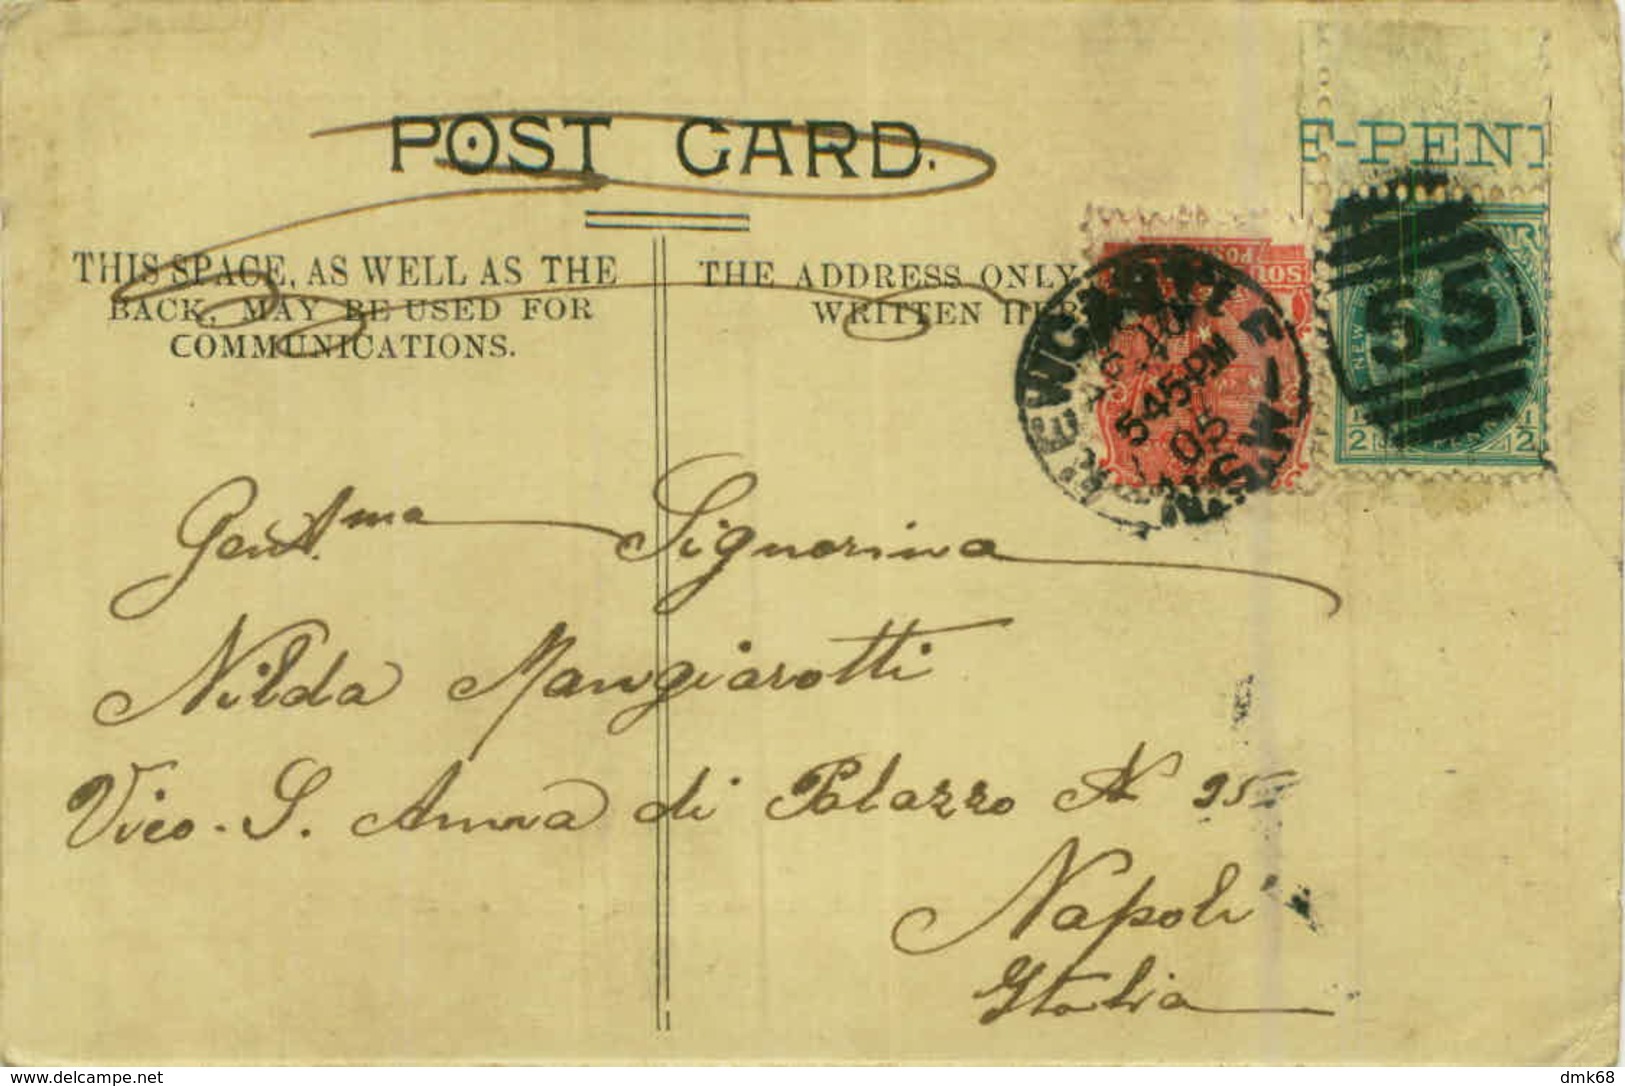 POST CARD.
F-PEN
THIS SPACE, AS WELL AS THE
BACK, MAY BE USED FOR
COMMUNICATIONS.
THE ADDRESS ONLY
WRITTEN HER
SOU
PO
NEWCASTLE
5 45 PM
05
N.S.W
55
NEW
1/2
1/2
Gent.ma Signorina
Nilda Mangiarotti
Vico S. Anna di Palazzo N 25
Napoli
Italia
www.delcampe.net
dmk68